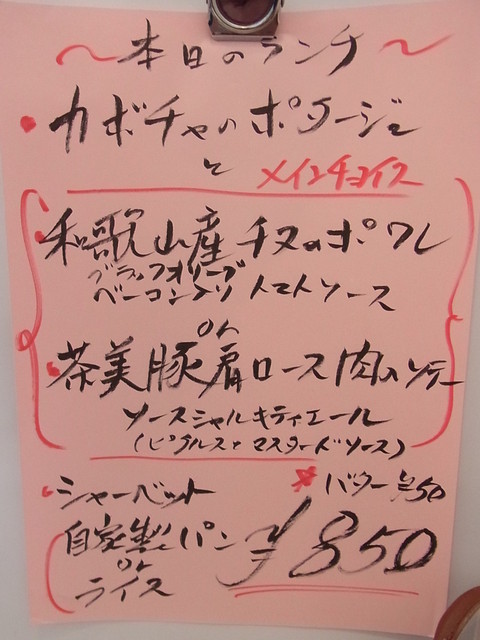 ～本日のランチ～
・カボチャのポタージュ
と メインチョイス
・和歌山産チヌのポワレ
ブラックオリーブ
ベーコン入り トマトソース
or
・茶美豚肩ロース肉のソテー
ソースシャルキティエール
(ピクルスとマスタードソース)
・シャーベット
バター ¥50
自家製パン
or
ライス
¥850